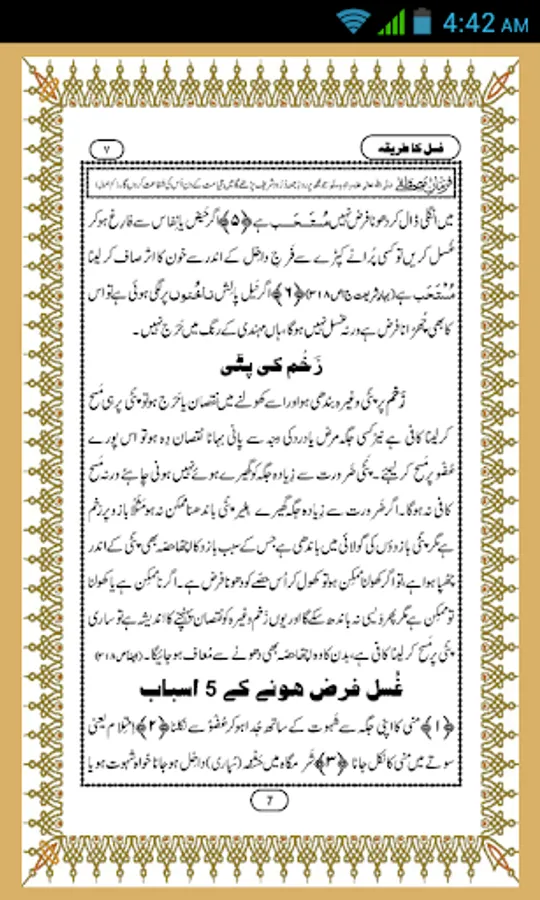 4:42 AM
غسل کا طریقہ
۷
فرمانِ مصطفٰے
میں انگلی ڈال کر دھونا فرض نہیں مُسْتَحَب ہے ﴿۵﴾ اگر حَیض یا نِفاس سے فارغ ہو کر
غسل کریں تو کسی پُرانے کپڑے سے فَرجِ داخِل کے اندر سے خون کا اثر صاف کر لینا
مُسْتَحَب ہے (بہارِ شریعت ج۱ ص۳۱۸) ﴿۶﴾ اگر نَیل پالش ناخنوں پر لگی ہوئی ہے تو اس
کا بھی چُھڑانا فرض ہے ورنہ غسل نہیں ہوگا، ہاں مہندی کے رنگ میں حَرَج نہیں۔
زَخْم کی پٹّی
زَخْم پر پٹّی وغیرہ بندھی ہو اور اسے کھولنے میں نقصان یا حَرَج ہو تو پٹّی پر ہی مَسْح
کر لینا کافی ہے نیز کسی جگہ مرض یا درد کی وجہ سے پانی بہانا نقصان دِہ ہو تو اس پورے
عُضْو پر مَسْح کر لیجئے۔ پٹّی ضَرورت سے زیادہ جگہ کو گھیرے ہوئے نہیں ہونی چاہئے ورنہ مَسْح
کافی نہ ہوگا۔ اگر ضَرورت سے زیادہ جگہ گھیرے بِغیر پٹّی باندھنا ممکن نہ ہو مَثَلاً بازو پر زخم
ہے مگر پٹّی بازوؤں کی گولائی میں باندھی ہے جس کے سبب بازو کا اچّھا حصّہ بھی پٹّی کے اندر
چھپا ہوا ہے، تو اگر کھولنا ممکِن ہو تو کھول کر اُس حصّے کو دھونا فرض ہے۔ اگر نا ممکِن ہے یا کھولنا
تو ممکِن ہے مگر پھر وَیسی نہ باندھ سکے گا اور یوں زَخْم وغیرہ کو نقصان پہنچنے کا اندیشہ ہے تو ساری
پٹّی پر مَسْح کر لینا کافی ہے، بدن کا وہ اچّھا حصّہ بھی دھونے سے مُعاف ہو جائیگا۔ (ایضاً ص۳۱۸)
غُسل فرض ہونے کے 5 اسباب
﴿۱﴾ مَنی کا اپنی جگہ سے شَہوت کے ساتھ جُدا ہو کر عُضْوْ سے نکلنا ﴿۲﴾ اِحْتِلام یعنی
سوتے میں مَنی کا نکل جانا ﴿۳﴾ شَرمگاہ میں حَشْفَہ (سُپاری) داخِل ہو جانا خواہ شَہوت ہو یا
7